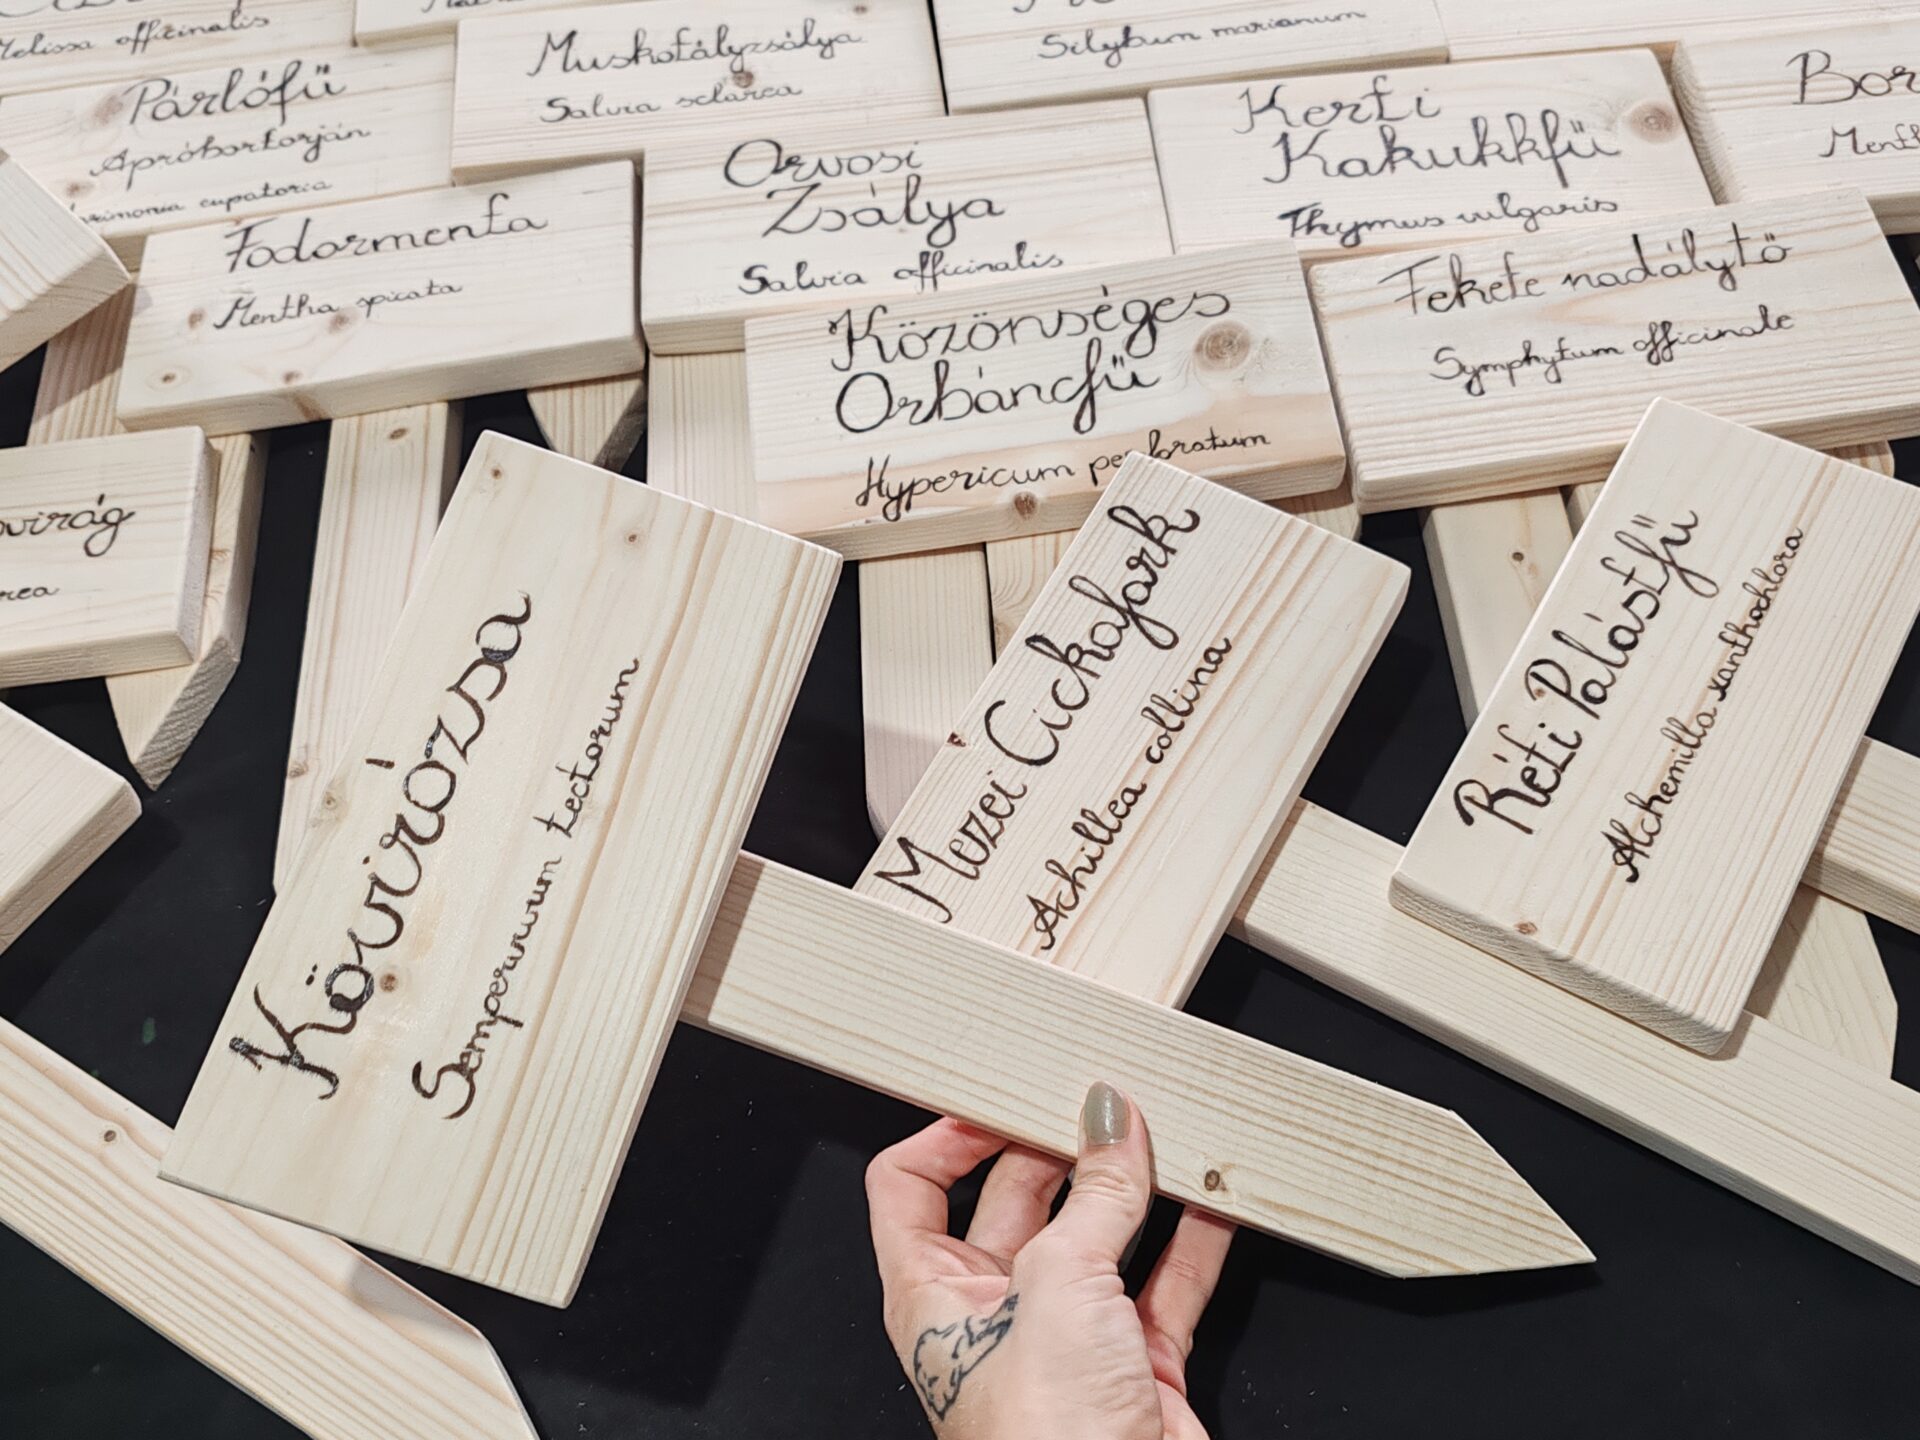 Melissa officinalis
Párlófű
Apróbortorján
eupatoria
Muskotályzsálya
Salvia sclarea
Silybum marianum
Orvosi
Zsálya
Salvia officinalis
Kerti
Kakukkfű
Thymus vulgaris
Bor
Menth
Fodormenta
Mentha spicata
Közönséges
Orbáncfű
Hypericum perforatum
Fekete nadálytő
Symphytum officinale
virág
rea
Kövirózsa
Sempervivum tectorum
Mezei Cickafark
Achillea collina
Réti Palástfű
Alchemilla xanthochlora